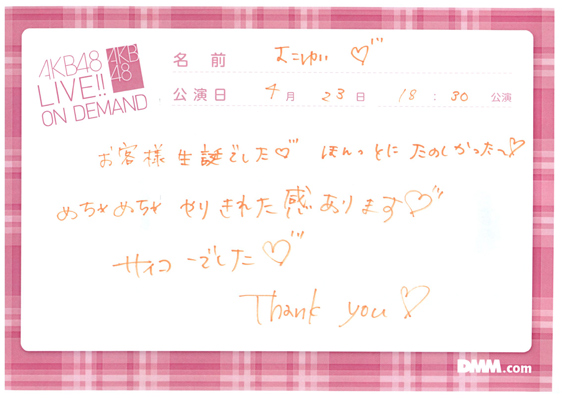 AKB48
LIVE!!
ON DEMAND
AKB
48
名 前 よこゆい♡
公演日 4月 23日 18:30 公演
お客様生誕でした♡ ほんっとに たのしかったー♡
めちゃめちゃ やりきれた感あります♡
サイコーでした♡
Thank you♡
DMM.com